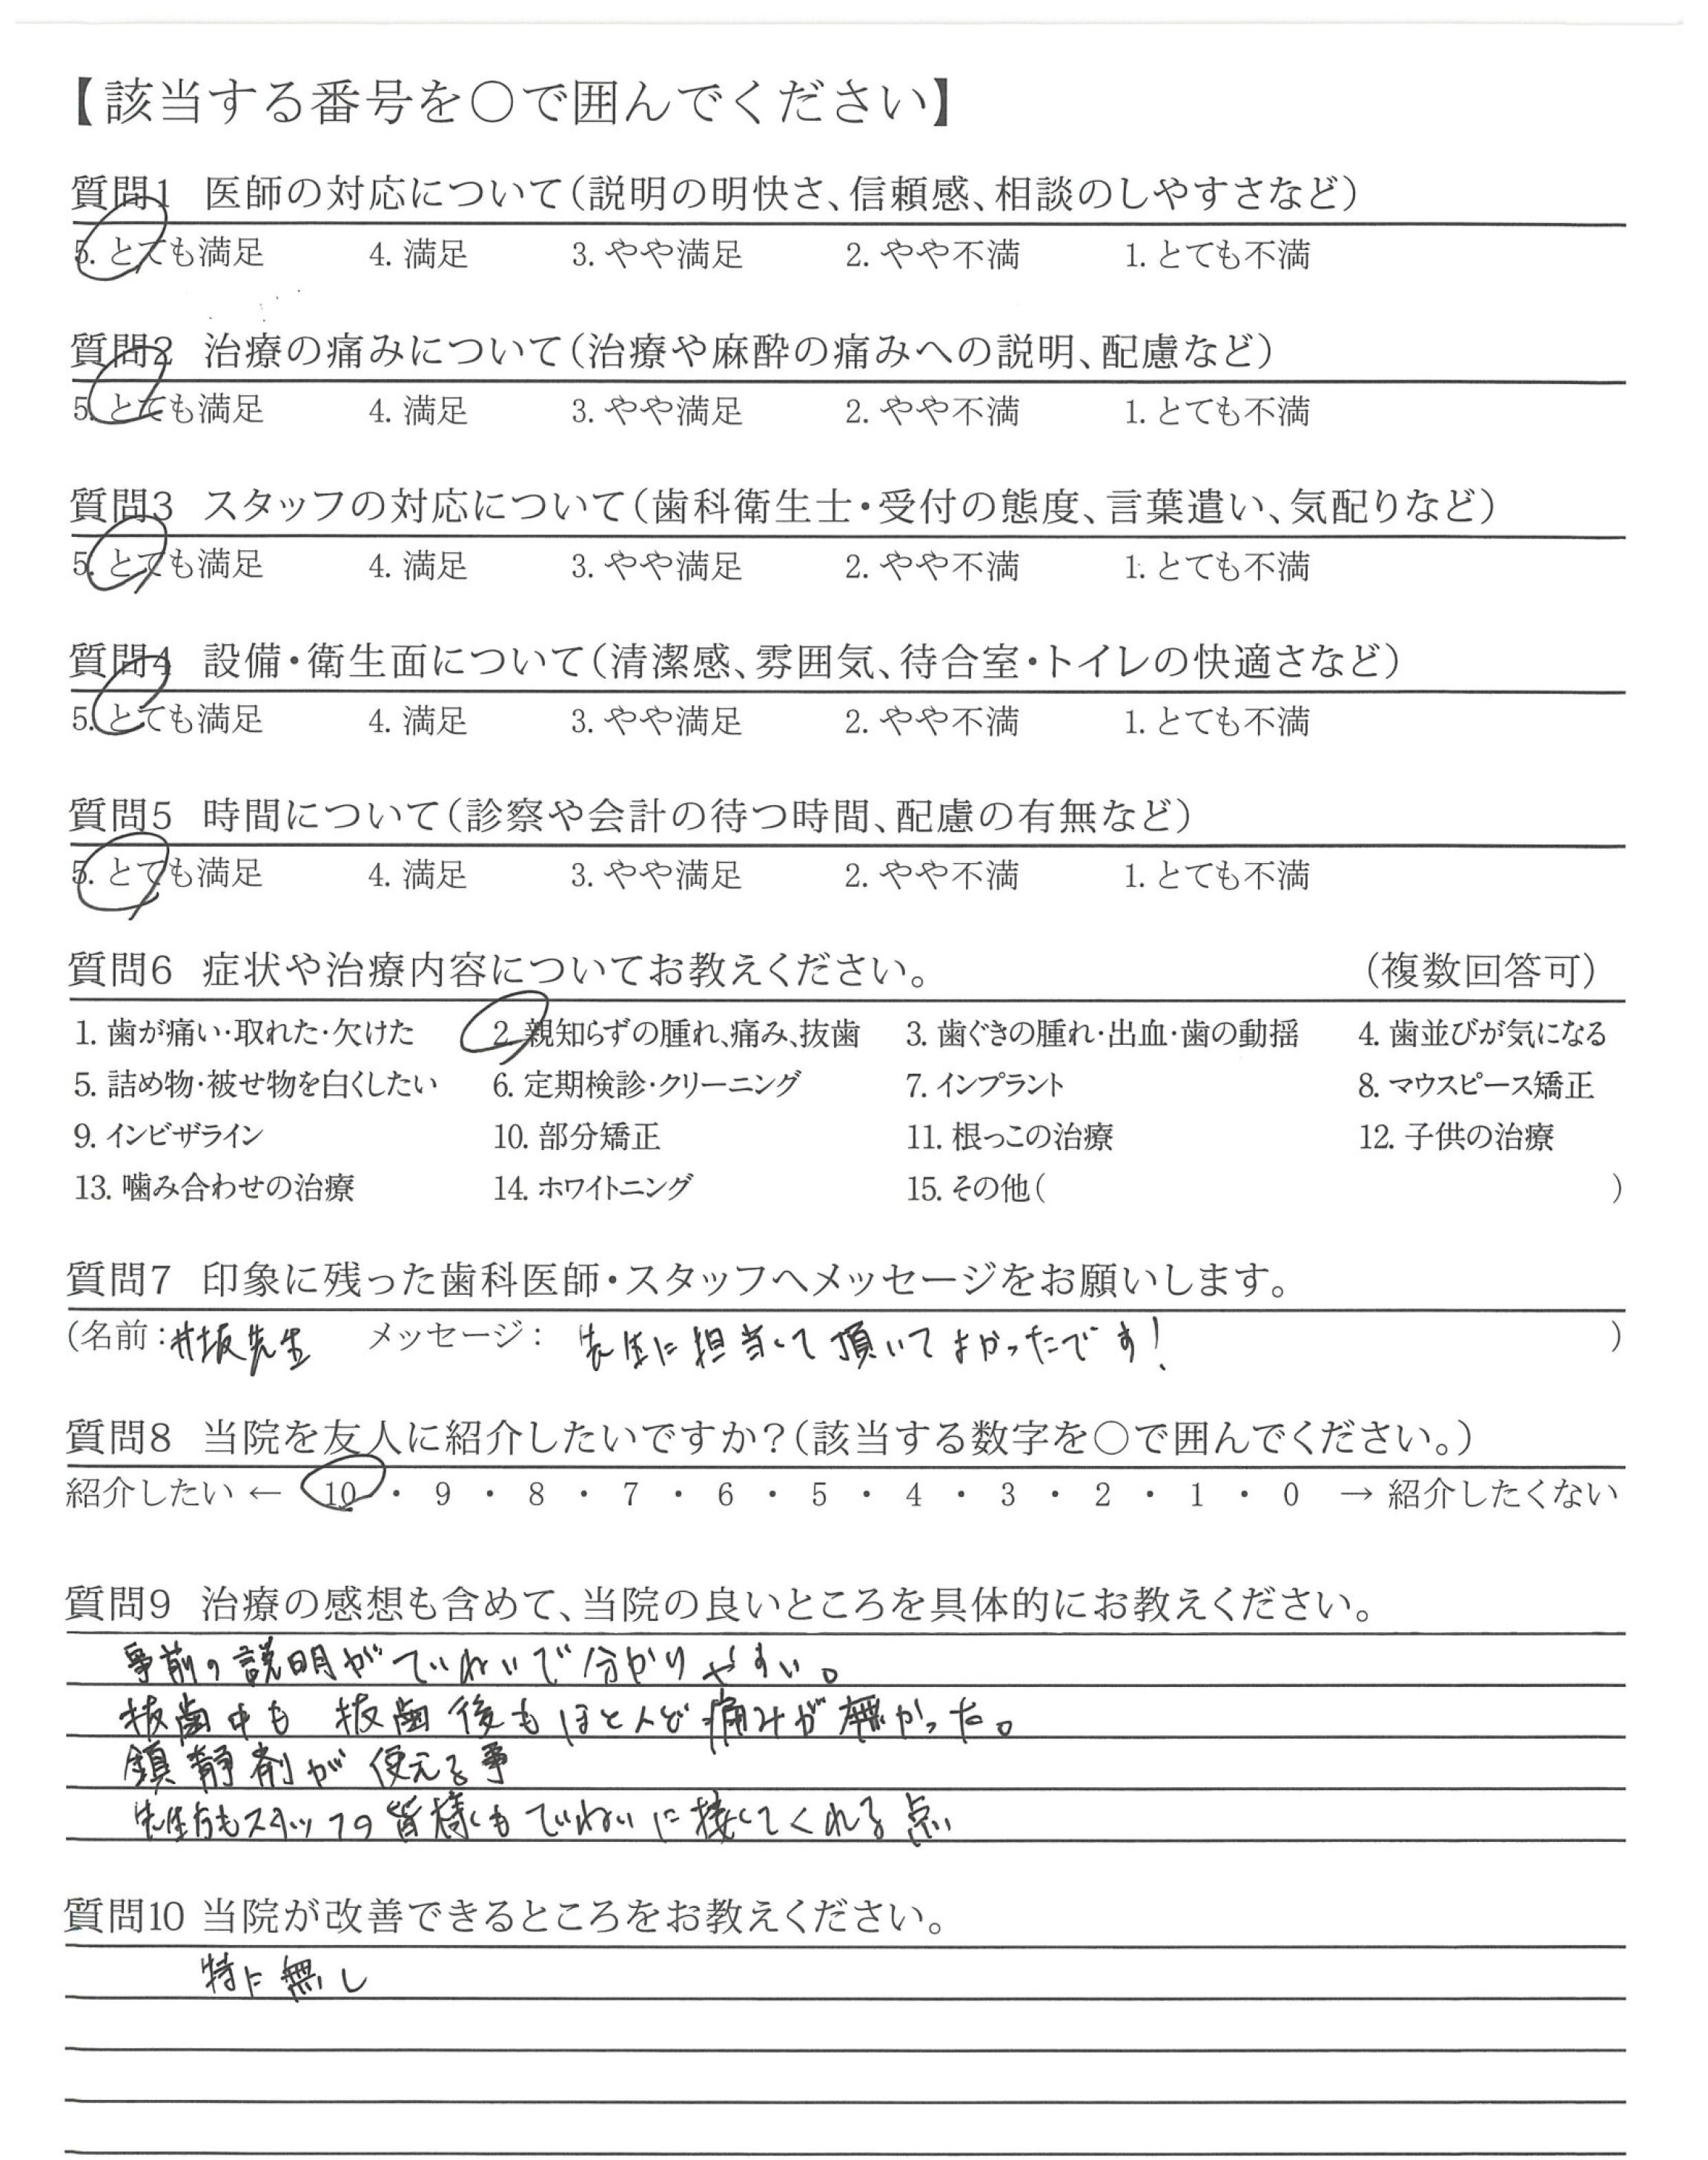 【該当する番号を〇で囲んでください】
質問1 医師の対応について(説明の明快さ、信頼感、相談のしやすさなど)
5. とても満足 4. 満足 3. やや満足 2. やや不満 1. とても不満
質問2 治療の痛みについて(治療や麻酔の痛みへの説明、配慮など)
5. とても満足 4. 満足 3. やや満足 2. やや不満 1. とても不満
質問3 スタッフの対応について(歯科衛生士・受付の態度、言葉遣い、気配りなど)
5. とても満足 4. 満足 3. やや満足 2. やや不満 1. とても不満
質問4 設備・衛生面について(清潔感、雰囲気、待合室・トイレの快適さなど)
5. とても満足 4. 満足 3. やや満足 2. やや不満 1. とても不満
質問5 時間について(診察や会計の待つ時間、配慮の有無など)
5. とても満足 4. 満足 3. やや満足 2. やや不満 1. とても不満
質問6 症状や治療内容についてお教えください。 (複数回答可)
1. 歯が痛い・取れた・欠けた 2. 親知らずの腫れ、痛み、抜歯 3. 歯ぐきの腫れ・出血・歯の動揺 4. 歯並びが気になる
5. 詰め物・被せ物を白くしたい 6. 定期検診・クリーニング 7. インプラント 8. マウスピース矯正
9. インビザライン 10. 部分矯正 11. 根っこの治療 12. 子供の治療
13. 噛み合わせの治療 14. ホワイトニング 15. その他( )
質問7 印象に残った歯科医師・スタッフへメッセージをお願いします。
(名前:井坂先生 メッセージ: 先生に担当して頂いてよかったです! )
質問8 当院を友人に紹介したいですか?(該当する数字を〇で囲んでください。)
紹介したい ← 10 ・ 9 ・ 8 ・ 7 ・ 6 ・ 5 ・ 4 ・ 3 ・ 2 ・ 1 ・ 0 → 紹介したくない
質問9 治療の感想も含めて、当院の良いところを具体的にお教えください。
事前の説明がていねいで分かりやすい。
抜歯中も 抜歯後もほとんど痛みが無かった。
鎮静剤が使える事
先生方もスタッフの皆様もていねいに接してくれる点
質問10 当院が改善できるところをお教えください。
特に無し